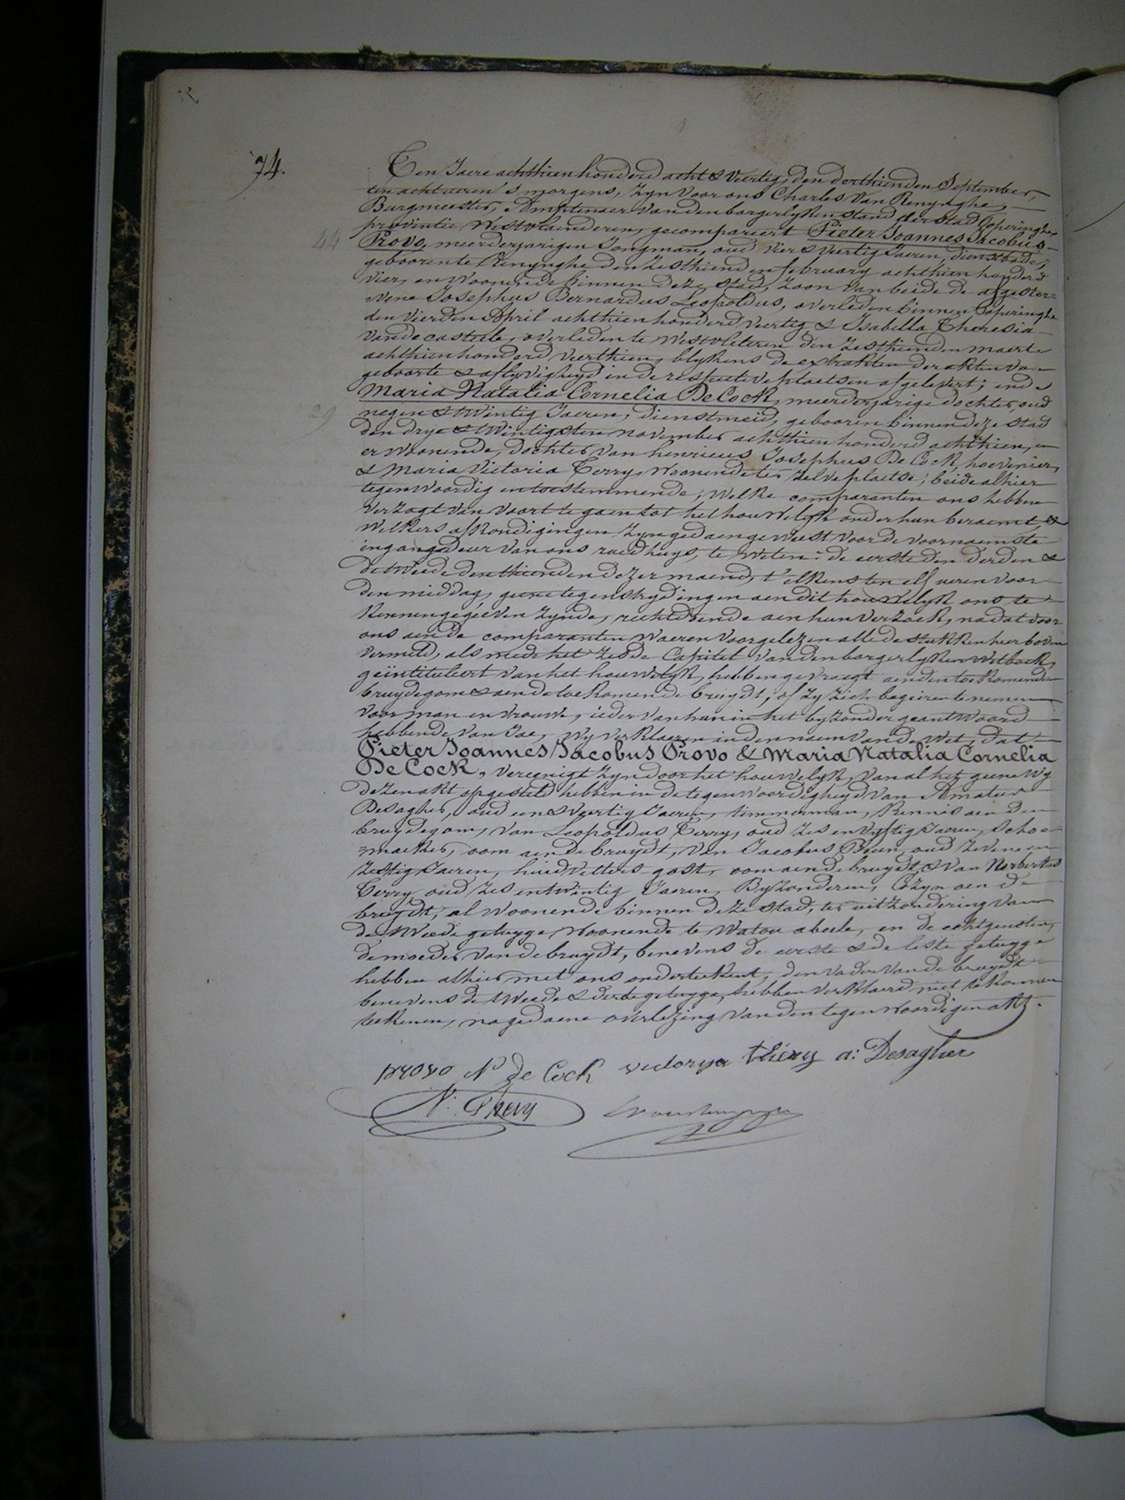 74.
Ten Jaere achthien honderd acht & veertig, den derthienden September,
ten acht ueren 's morgens, zyn voor ons Charles Van Renynghe,
Burgmeester, Amptenaer van den borgerlyken stand der stad Poperinghe
provintie Westvlaenderen, gecompareert Pieter Joannes Jacobus
44 Provo, meerderjarigen Jongman, oud vier & veertig Jaeren, dienstbode,
geboren te Renynghe den zesthienden february achthien honderd
vier, en woonende binnen deze stad, zoon van beide de afgestor-
vene Josephus Bernardus Leopoldus, overleden binnen Poperinghe
den vierden April achthien honderd veertig & Isabella Theresia
Vandecasteele, overleden te Westvleteren den zesthienden maerte
achthien honderd veerthien, blykens de extrakten der akten van
geboorte & aflyvigheyd in de respective plaetsen afgelevert; ende
Maria Natalia Cornelia De Cock, meerderjarige dochter, oud
29 negen & twintig Jaeren, dienstmeid, geboren binnen deze stad
den dry & twintigsten november achthien honderd achthien, en
er woonende, dochter van henricus Josephus De Cock, hovenier,
& Maria Victoria Terry, woonende ter zelve plaetse, beide alhier
tegenwoordig en toestemmende; welke comparanten ons hebben
verzogt van voort te gaen tot het houwelyk onder hun beraemt, &
welkers afkondigingen zyn gedaen geweest voor de voornaemste
ingangdeur van ons raedhuys, te weten: de eerste den derden &
de tweede den thienden dezer maend, t'elkens ten elf ueren voor
den middag, geene tegenstrydingen aen dit houwelyk ons te
kennen gegeven zynde, rechtdoende aen hun verzoek, na dat door
ons aen de comparanten waeren voorgelezen alle de stukken hier boven
vermeld, als mede het zesde Capitel van den borgerlyken Wetboek,
geïntituleert van het houwelyk, hebben gevraegt aen den toekomenden
bruydegom & aen de toekomende bruydt, of zy zich begeiren te nemen
voor man en vrouwe, ieder van hun in het byzonder geantwoord
hebbende van Jae, wy verklaeren in den naem van de Wet, dat
Pieter Joannes Jacobus Provo & Maria Natalia Cornelia
De Cock, vereenigt zyn door het houwelyk, van al het geene wy
dezen akt opgesteld hebben in de tegenwoordigheyd van Amatus
Desagher, oud een & veertig Jaeren, timmerman, kennis aen den
bruydegom, van Leopoldus Terry, oud zes en vyftig Jaeren, schoe-
maeker, oom aen de bruydt, van Jacobus Bruin, oud zeven en
zestig Jaeren, huidvetters gast, oom aen de bruydt, & van Norbertus
Terry, oud zes en twintig Jaeren, Byzonderen, Cozyn aen de
bruydt, al woonende binnen deze stad, ter uitzondering van
de tweede getuyge, woonende te Watou abeele, en de echtgenoten,
de moeder van de bruydt, benevens de eerste & de leste getuyge
hebben alhier met ons onderteekent, den vader van de bruydt
benevens de tweede & derde getuyge, hebben verklaerd niet te konnen
teekenen, na gedaene overlezing van den tegenwoordigen akt.
provo N D de Cock victorya thiery a: Desagher
N. Thery C Vanrenynghe